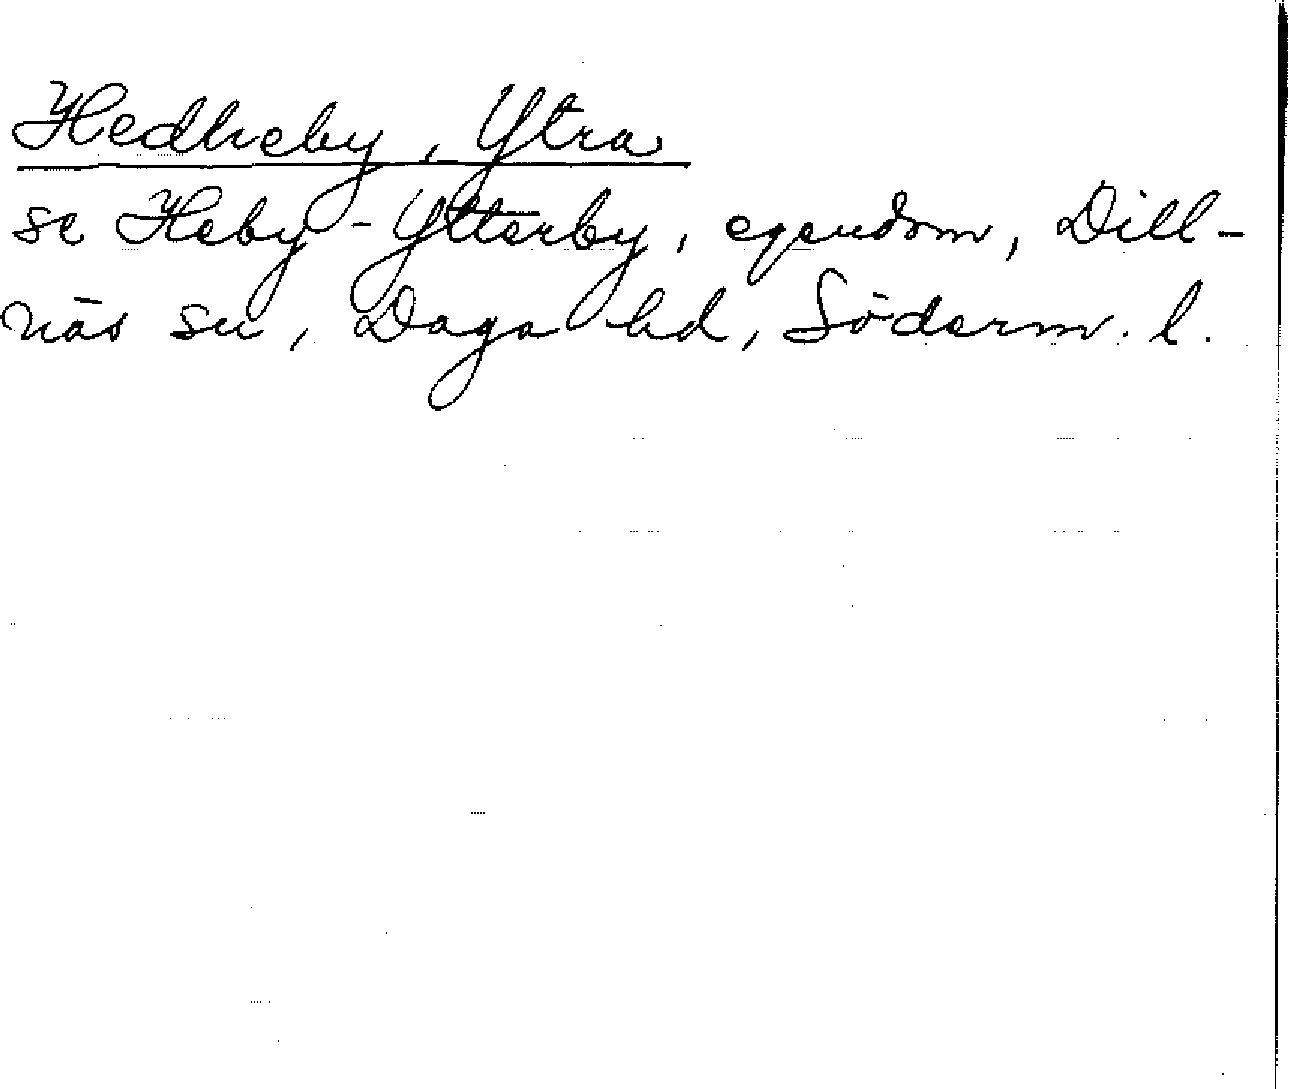 Hedheby, Ytra
se Heby-Ytterby, egendom, Dill-
näs sn, Daga hd, Söderm. l.